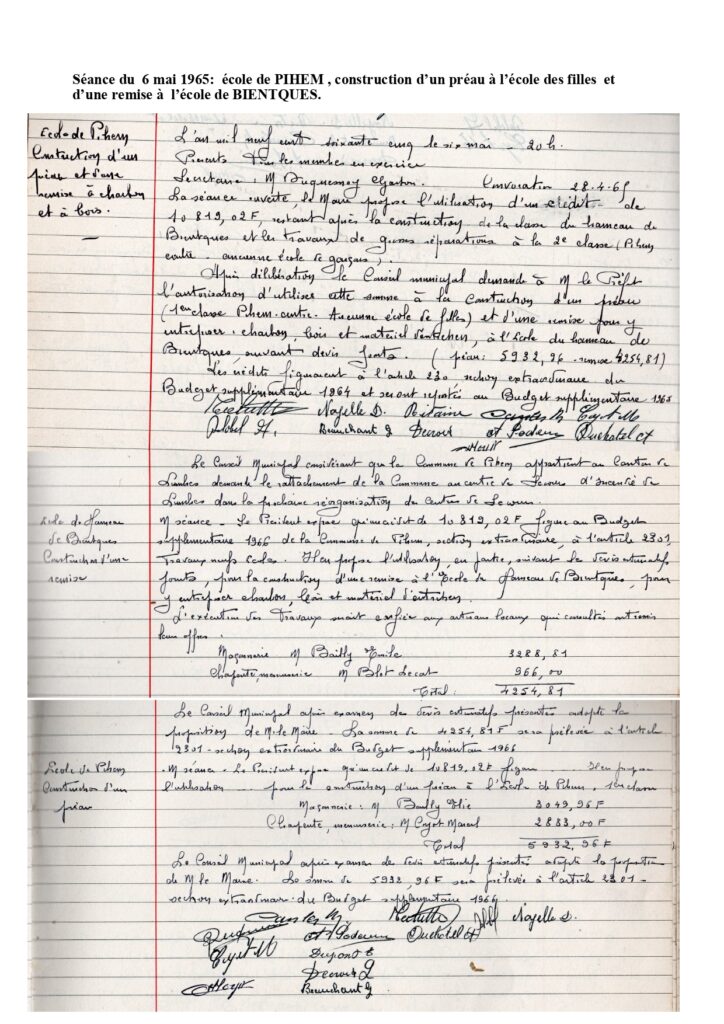 Séance du 6 mai 1965: école de PIHEM , construction d'un préau à l'école des filles et
d'une remise à l'école de BIENTQUES.
Ecole de Pihem
Construction d'un
préau et d'une
remise à charbon
et à bois.
L'an mil neuf cent soixante cinq le six mai - 20 h.
Présents Tous les membres en exercice
Secrétaire : M Duquesnoy Gaston. Convocation 28.4.65
La séance ouverte, le Maire propose l'utilisation d'un crédit de
10 819,02 F, restant après la construction de la classe du hameau de
Bientques et les travaux de grosses réparations à la 2e classe (Pihem
centre - ancienne école de garçons).
Après délibération le Conseil municipal demande à M le Préfet
l'autorisation d'utiliser cette somme à la construction d'un préau
(1ère classe Pihem-centre. Ancienne école de filles) et d'une remise pour y
entreposer charbon, bois et matériel d'entretien, à l'école du hameau de
Bientques, suivant devis joints. (préau : 5932,96 - remise 4254,81)
Les crédits figuraient à l'article 230 section extraordinaire du
Budget supplémentaire 1964 et seront reportés au Budget supplémentaire 1965
Nazelle D.
Beauchant G Decroix Duchatel
Le Conseil Municipal considérant que la Commune de Pihem appartient au Canton de
Lumbres demande le rattachement de la Commune au centre de Secours d'Incendie de
Lumbres dans la prochaine réorganisation du centres de Secours.
Ecole de Hameau
de Bientques
Construction d'une
remise
M séance - Le Président expose qu'un crédit de 10 819,02 F figure au Budget
supplémentaire 1966 de la Commune de Pihem, section extraordinaire, à l'article 2301,
Travaux neufs écoles. Il en propose l'utilisation, en partie, suivant les devis estimatifs
joints, pour la construction d'une remise à l'Ecole de Hameau de Bientques, pour
y entreposer charbon, bois et matériel d'entretien.
L'exécution des Travaux serait confiée aux artisans locaux qui consultés ont remis
leurs offres.
Maçonnerie M Bailly Emile 3288,81
Charpente, menuiserie M Blot Lecat 966,00
Total : 4254,81
Le Conseil Municipal après examen des devis estimatifs présentés adopte la
proposition de M. le Maire - La somme de 4254,81 F sera prélevée à l'article
2301 - section extraordinaire du Budget supplémentaire 1966
Ecole de Pihem
Construction d'un
préau
M séance - Le Président expose qu'un crédit de 10819,02 F figure Il en propose
l'utilisation pour la construction d'un préau à l'Ecole de Pihem, 1ère classe
Maçonnerie : M Bailly Elie 3049,96 F
Charpente, menuiserie : M Cryot Marcel 2883,00 F
Total 5932,96 F
Le Conseil Municipal après examen des devis estimatifs présentés adopte la proposition
de M le Maire. La somme de 5932,96 F sera prélevée à l'article 2301 -
section extraordinaire du Budget supplémentaire 1966
Nazelle D.
Duchatel
Dupont E
Decroix
Beauchant G